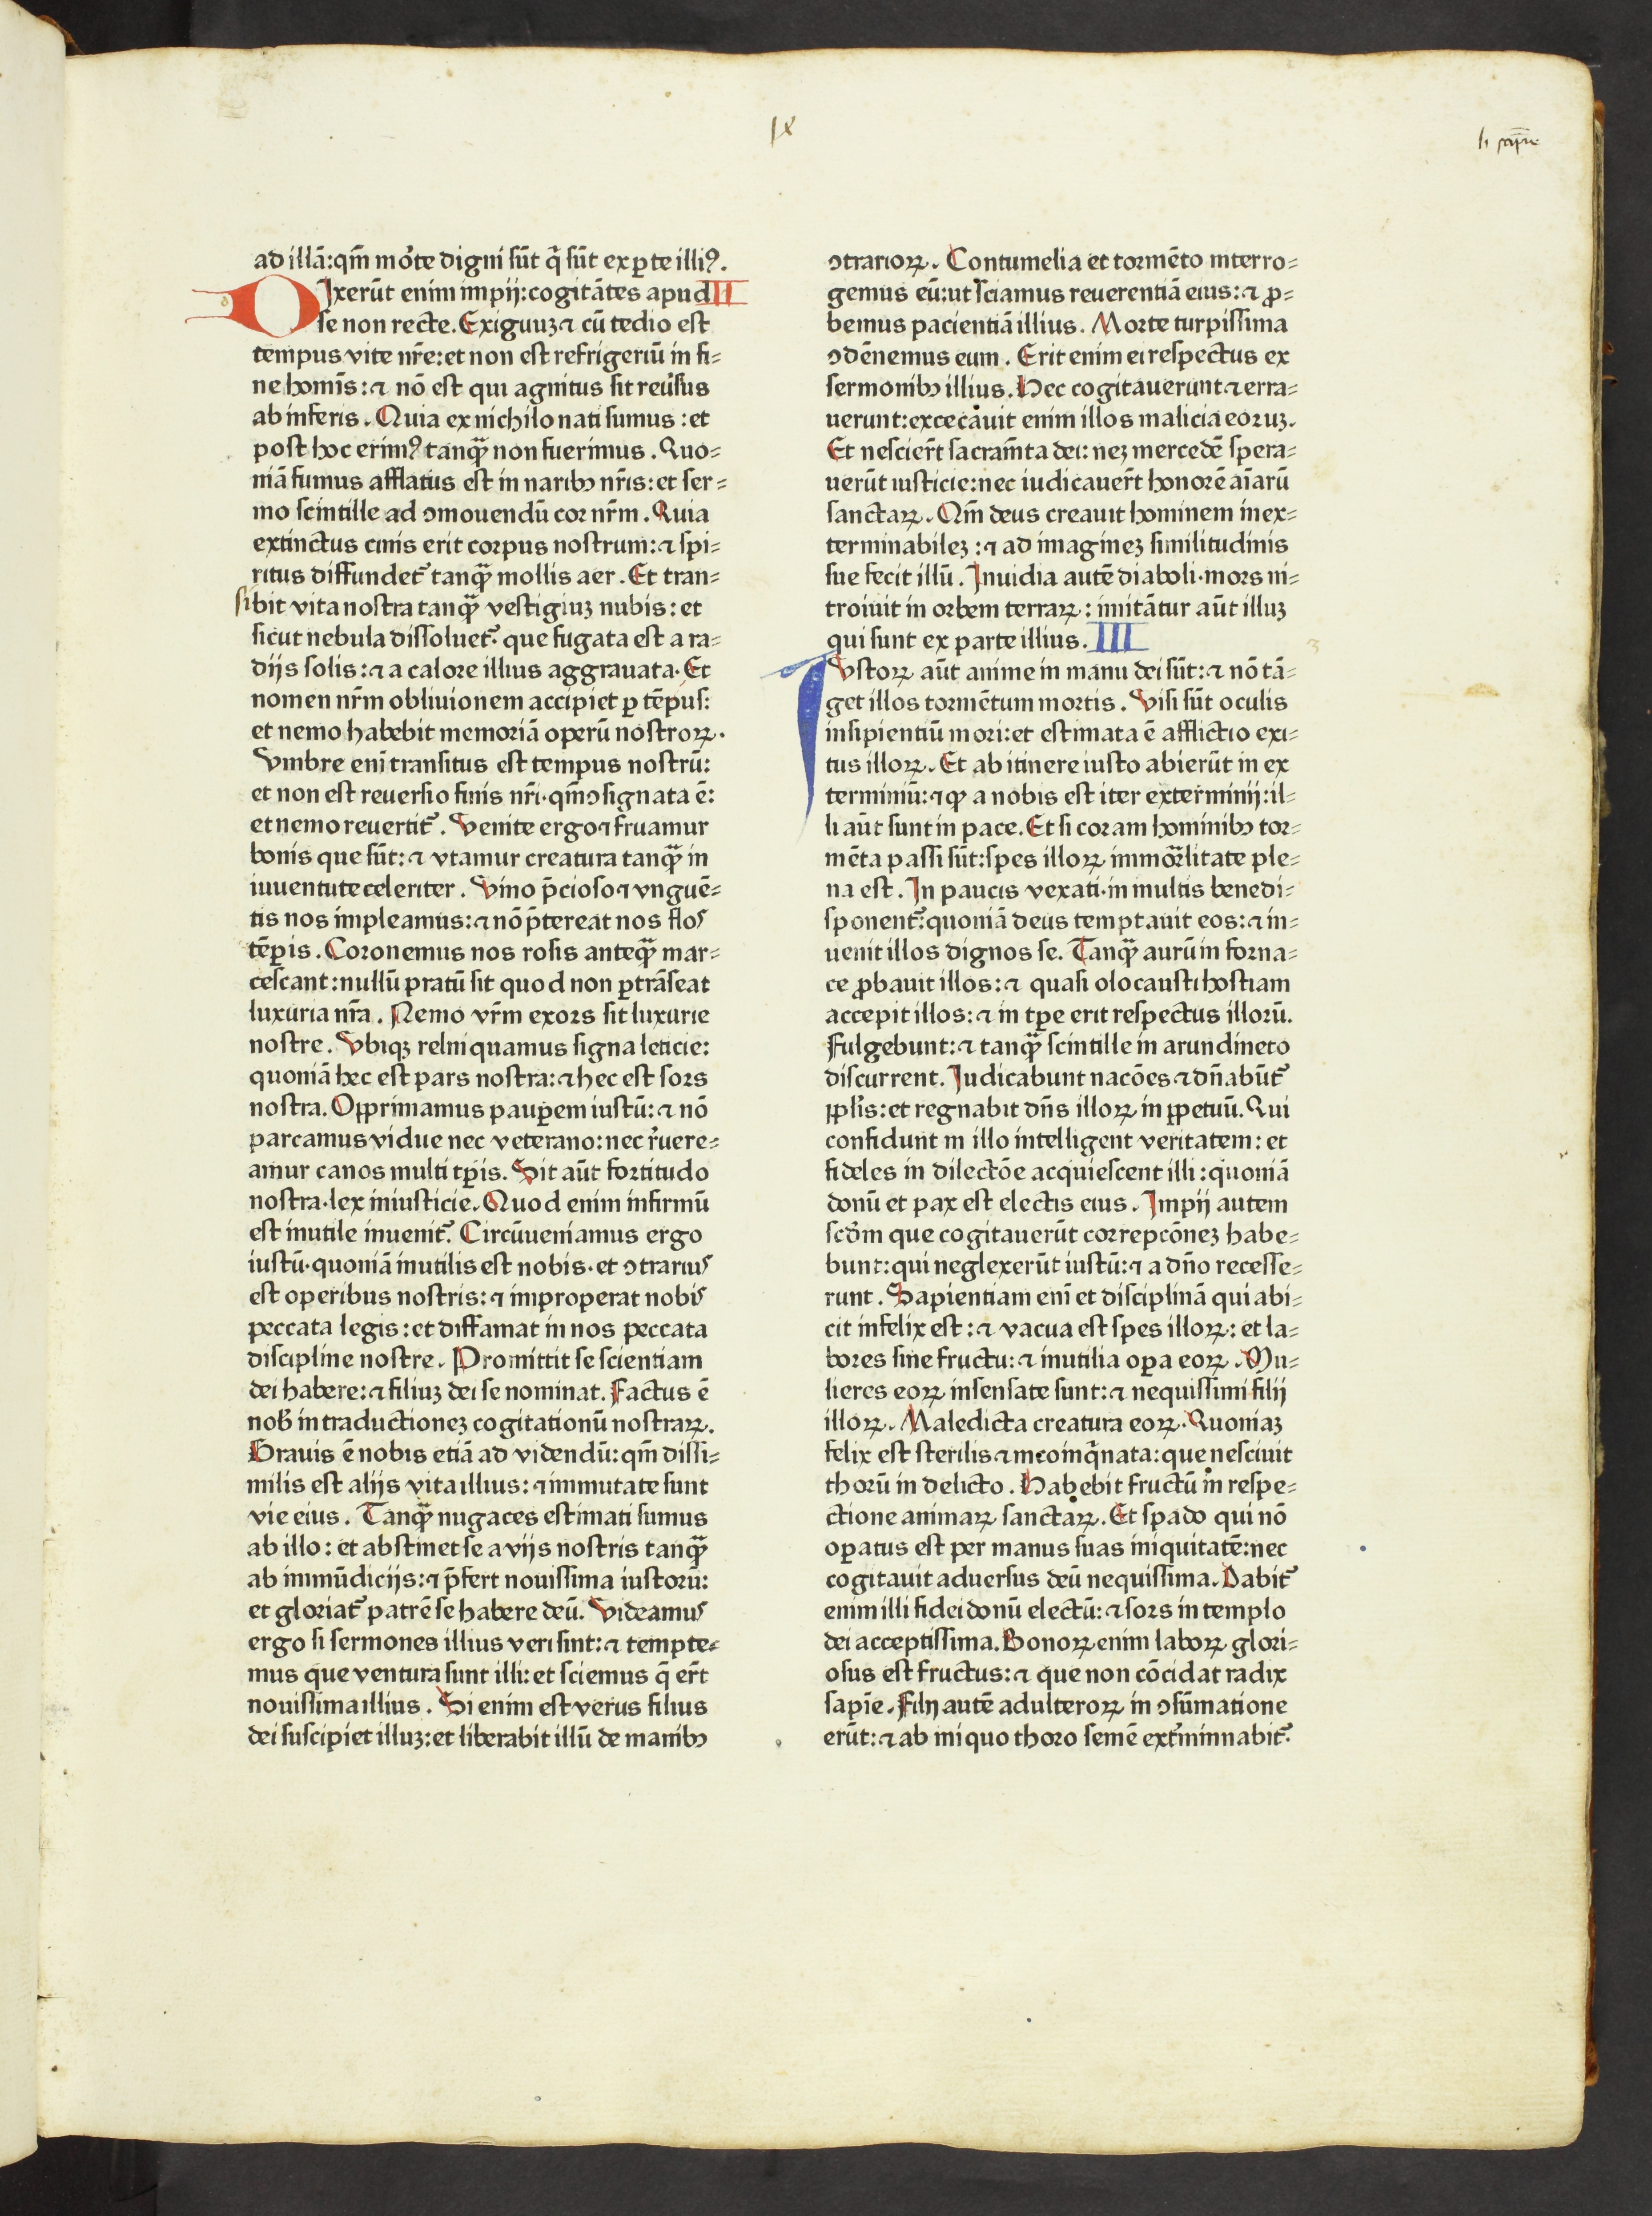 ix
li sapīe
ad illā:qm̄ mo᷑te digni sūt q̄ sūt ex ꝑte illiꝰ.
DIxerūt enim impij:cogitātes apud II
se non recte. Exiguuꝫ ⁊ cū tedio est
tempus vite nr̄e:et non est refrigeriū in fi⸗
ne homīs: ⁊ nō est qui agnitus sit reu᷑sus
ab inferis. Quia ex nichilo nati sumus: et
post hoc erimꝰ tanqꝫ̄ non fuerimus. Quo⸗
niā fumus afflatus est in naribꝫ nr̄is: et ser⸗
mo scintille ad ↄmouendū cor nr̄m. Quia
extinctus cinis erit corpus nostrum: ⁊ spi⸗
ritus diffundet᷑ tanqꝫ̄ mollis aer. Et tran⸗
sibit vita nostra tanqꝫ̄ vestigiuꝫ nubis: et
sicut nebula dissoluet᷑. que fugata est a ra⸗
dijs solis: ⁊ a calore illius aggrauata. Et
nomen nr̄m obliuionem accipiet ꝑ tēpus:
et nemo habebit memoriā operū nostroꝝ.
Umbre eni transitus est tempus nostrū:
et non est reuersio finis nr̄i. qm̄ ↄsignata ē:
et nemo reuertit᷑. Venite ergo ⁊ fruamur
bonis que sūt: ⁊ vtamur creatura tanqꝫ̄ in
iuuentute celeriter. Vino p̄cioso ⁊ vnguē⸗
tis nos impleamus: ⁊ nō p̄tereat nos flos
tēpis. Coronemus nos rosis anteqꝫ̄ mar⸗
cescant: nullū pratū sit quod non ꝑtrāseat
luxuria nr̄a. Nemo vr̄m exors sit luxurie
nostre. Ubiqꝫ relinquamus signa leticie:
quoniā hec est pars nostra: ⁊ hec est sors
nostra. Opprimamus pauꝑem iustū: ⁊ nō
parcamus vidue nec veterano: nec r᷑uere⸗
amur canos multi tꝑis. Sit aūt fortitudo
nostra. lex iniusticie. Quod enim infirmū
est inutile inuenit᷑. Circūueniamus ergo
iustū. quoniā inutilis est nobis. et ↄtrarius
est operibus nostris: ⁊ improperat nobis
peccata legis: et diffamat in nos peccata
discipline nostre. Promittit se scientiam
dei habere: ⁊ filiuꝫ dei se nominat. Factus ē
nob᷑ in traductioneꝫ cogitationū nostraꝝ.
Grauis ē nobis etiā ad videndū: qm̄ dissi⸗
milis est alijs vita illius: ⁊ immutate sunt
vie eius. Tanqꝫ̄ nugaces estimati sumus
ab illo: et abstinet se a vijs nostris tanqꝫ̄
ab immūdicijs: ⁊ p̄fert nouissima iustorū:
et gloriat᷑ patrē se habere deū. Videamus
ergo si sermones illius veri sint: ⁊ tempte⸗
mus que ventura sunt illi: et sciemus q̄ er̄t
nouissima illius. Si enim est verus filius
dei suscipiet illuꝫ: et liberabit illū de manibꝫ
ↄtrarioꝝ. Contumelia et tormēto interro⸗
gemus eū: ut sciamus reuerentiā eius: ⁊ ꝓ⸗
bemus pacientiā illius. Morte turpissima
ↄdēnemus eum. Erit enim ei respectus ex
sermonibꝫ illius. Hec cogitauerunt ⁊ erra⸗
uerunt: excecauit enim illos malicia eoruꝫ.
Et nescier̄t sacram̄ta dei: neꝫ mercedē spera⸗
uerūt iusticie: nec iudicauer̄t honorē aīarū
sanctaꝝ. Qm̄ deus creauit hominem inex⸗
terminabileꝫ: ⁊ ad imagineꝫ similitudinis
sue fecit illū. Inuidia autē diaboli. mors in⸗
troiuit in orbem terraꝝ: imitātur aūt illuꝫ
qui sunt ex parte illius. III
3
IUstoꝝ aūt anime in manu dei sūt: ⁊ nō tā⸗
get illos tormētum mortis. Visi sūt oculis
insipientiū mori: et estimata ē afflictio exi⸗
tus illoꝝ. Et ab itinere iusto abierūt in ex
terminiū: ⁊ qꝫ a nobis est iter exterminij: il⸗
li aūt sunt in pace. Et si coram hominibꝫ tor⸗
mēta passi sūt: spes illoꝝ immor̄litate ple⸗
na est. In paucis vexati. in multis bene di⸗
sponent᷑: quoniā deus temptauit eos: ⁊ in⸗
uenit illos dignos se. Tanqꝫ̄ aurū in forna⸗
ce ꝓbauit illos: ⁊ quasi olocausti hostiam
accepit illos: ⁊ in tꝑe erit respectus illorū.
Fulgebunt: ⁊ tanqꝫ̄ scintille in arundineto
discurrent. Iudicabunt nacōes ⁊ dn̄abūt᷑
ppl̄is: et regnabit dn̄s illoꝝ in ppetuū. Qui
confidunt in illo intelligent veritatem: et
fideles in dilectōe acquiescent illi: quoniā
donū et pax est electis eius. Impij autem
scd̄m que cogitauerūt correpcōneꝫ habe⸗
bunt: qui neglexerūt iustū: ⁊ a dn̄o recesse⸗
runt. Sapientiam eni et disciplinā qui abi⸗
cit infelix est: ⁊ vacua est spes illoꝝ: et la⸗
bores sine fructu: ⁊ inutilia opa eoꝝ. Mu⸗
lieres eoꝝ insensate sunt: ⁊ nequissimi filij
illoꝝ. Maledicta creatura eoꝝ. Quoniaꝫ
felix est sterilis ⁊ incoinq̄nata: que nesciuit
thorū in delicto. Habebit fructū in respe⸗
ctione animaꝝ sanctaꝝ. Et spado qui nō
oꝑatus est per manus suas iniquitatē: nec
cogitauit aduersus deū nequissima. Dabit᷑
enim illi fidei donū electū: ⁊ sors in templo
dei acceptissima. Bonoꝝ enim laboꝝ glori⸗
osus est fructus: ⁊ que non cōcidat radix
sapīe. Filij autē adulteroꝝ in ↄsūmatione
erūt: ⁊ ab iniquo thoro semē ext᷑minnabit᷑.